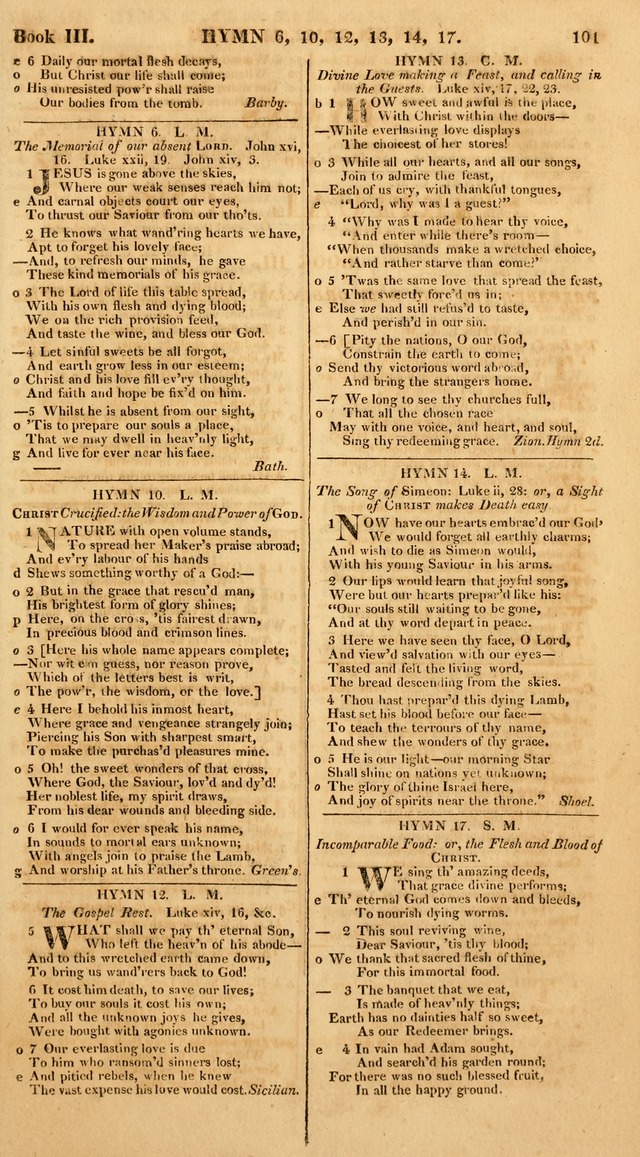 Book III. HYMN 6, 10, 12, 13, 14, 17. 101
e 6 Daily our mortal flesh decays,
o But Christ our life shall come;
o His unresisted pow'r shall raise
Our bodies from the tomb. Barby.
HYMN 6. L. M.
The Memorial of our absent LORD. John xvi,
16. Luke xxii, 19. John xiv, 3.
1 JESUS is gone above the skies,
Where our weak senses reach him not;
e And carnal objects court our eyes,
To thrust our Saviour from our tho'ts.
2 He knows what wand'ring hearts we have,
Apt to forget his lovely face;
—And, to refresh our minds, he gave
These kind memorials of his grace.
o 3 The Lord of life this table spread,
With his own flesh and dying blood;
We on the rich provision feed,
And taste the wine, and bless our God.
—4 Let sinful sweets be all forgot,
And earth grow less in our esteem;
o Christ and his love fill ev'ry thought,
And faith and hope be fix'd on him.
—5 Whilst he is absent from our sight,
o 'Tis to prepare our souls a place,
That we may dwell in heav'nly light,
g And live for ever near his face.
—— Bath.
HYMN 10. L. M.
CHRIST Crucified: the Wisdom and Power of GOD.
1 NATURE with open volume stands,
To spread her Maker's praise abroad;
And ev'ry labour of his hands
d Shews something worthy of a God:—
o 2 But in the grace that rescu'd man,
His brightest form of glory shines;
p Here, on the cross, 'tis fairest drawn,
In precious blood and crimson lines.
o 3 [Here his whole name appears complete;
—Nor wit can guess, nor reason prove,
Which of the letters best is writ,
o The pow'r, the wisdom, or the love.]
e 4 Here I behold his inmost heart,
Where grace and vengeance strangely join;
Piercing his Son with sharpest smart,
To make the purchas'd pleasures mine.
o 5 Oh! the sweet wonders of that cross,
Where God, the Saviour, lov'd and dy'd!
Her noblest life, my spirit draws,
From his dear wounds and bleeding side.
o 6 I would for ever speak his name,
In sounds to mortal ears unknown;
With angels join to praise the Lamb,
g And worship at his Father's throne. Green's.
HYMN 12. L. M.
The Gospel Rest. Luke xiv, 16, &c.
5 WHAT shall we pay th' eternal Son,
Who left the heav'n of his abode—
And to this wretched earth came down,
To bring us wand'rers back to God!
6 It cost him death, to save our lives;
To buy our souls it cost his own;
And all the unknown joys he gives,
Were bought with agonies unknown.
o 7 Our everlasting love is due
To him who ransom'd sinners lost;
e And pitied rebels, when he knew
The vast expense his love would cost. Sicilian.
HYMN 13. C. M.
Divine Love making a Feast, and calling in
the Guests. Luke xiv, 17, 22, 23.
b 1 HOW sweet and awful is the place,
With Christ within the doors—
—While everlasting love displays
The choicest of her stores!
o 3 While all our hearts, and all our songs,
Join to admire the feast,
—Each of us cry, with thankful tongues,
e "Lord, why was I a guest?"
4 "Why was I made to hear thy voice,
"And enter while there's room—
"When thousands make a wretched choice,
"And rather starve than come?'
o 5 'Twas the same love that spread the feast,
That sweetly forc'd us in;
e Else we had still refus'd to taste,
And perish'd in our sin.
—6 [Pity the nations, O our God,
Constrain the earth to come;
o Send thy victorious word abroad,
And bring the strangers home.
—7 We long to see thy churches full,
o That all the chosen race
May with one voice, and heart, and soul,
Sing thy redeeming grace. Zion. Hymn 2d.
HYMN 14. L. M.
The Song of Simeon: Luke ii, 28: or, a Sight
of CHRIST makes Death easy.
1 NOW have our hearts embrac'd our God,
We would forget all earthly charms;
And wish to die as Simeon would,
With his young Saviour in his arms.
2 Our lips would learn that joyful song,
Were but our hearts prepar'd like his:
"Our souls still waiting to be gone,
And at thy word depart in peace.
3 Here we have seen thy face, O Lord,
And view'd salvation with our eyes—
Tasted and felt the living word,
The bread descending from the skies.
4 Thou hast prepar'd this dying Lamb,
Hast set his blood before our face—
To teach the terrours of thy name,
And shew the wonders of thy grace.
o 5 He is our light—our morning Star
Shall shine on nations yet unknown;
o The glory of thine Israel here,
And joy of spirits near the throne." Shoel.
HYMN 17. S. M.
Incomparable Food: or, the Flesh and Blood of
CHRIST.
1 WE sing th' amazing deeds,
That grace divine performs;
e Th' eternal God comes down and bleeds,
To nourish dying worms.
— 2 This soul reviving wine,
Dear Saviour, 'tis thy blood;
o We thank that sacred flesh of thine,
For this immortal food.
— 3 The banquet that we eat,
Is made of heav'nly things;
Earth has no dainties half so sweet,
As our Redeemer brings.
e 4 In vain had Adam sought,
And search'd his garden round;
For there was no such blessed fruit,
In all the happy ground.